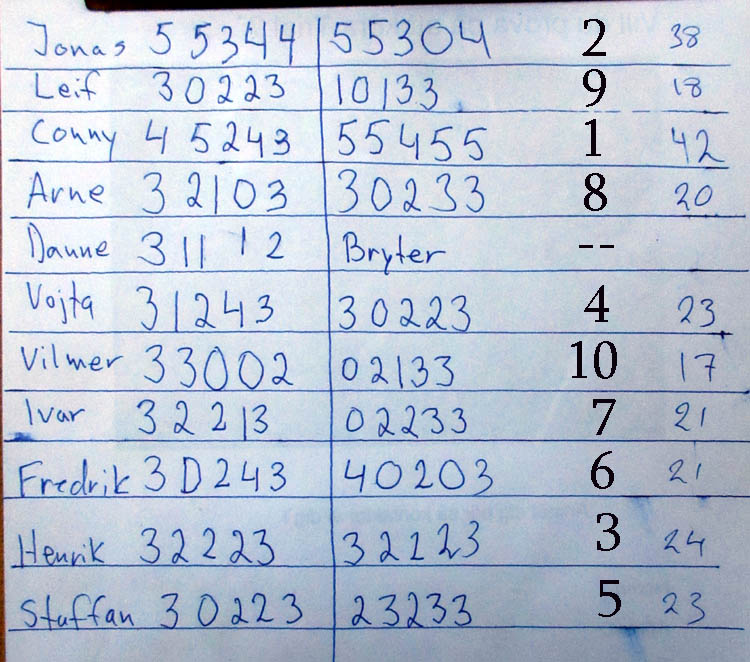 Jonas 55344 55304 2 38
Leif 30223 10133 9 18
Conny 45243 55455 1 42
Arne 32103 30233 8 20
Danne 31112 Bryter --
Vojta 31243 30223 4 23
Vilmer 33002 02133 10 17
Ivar 32213 02233 7 21
Fredrik 30243 40203 6 21
Henrik 32223 32223 3 24
Staffan 30223 23233 5 23